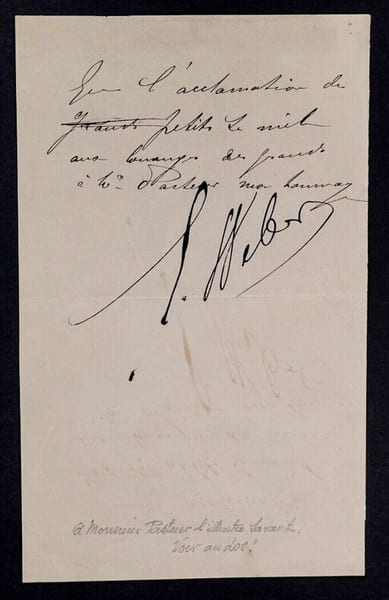 Que l'acclamation des
grands petits se mêle
aux louanges des grands
à Mr Pasteur mon hommage
S. Weber
A Monsieur Pasteur l'illustre savant.
Voir au dos!